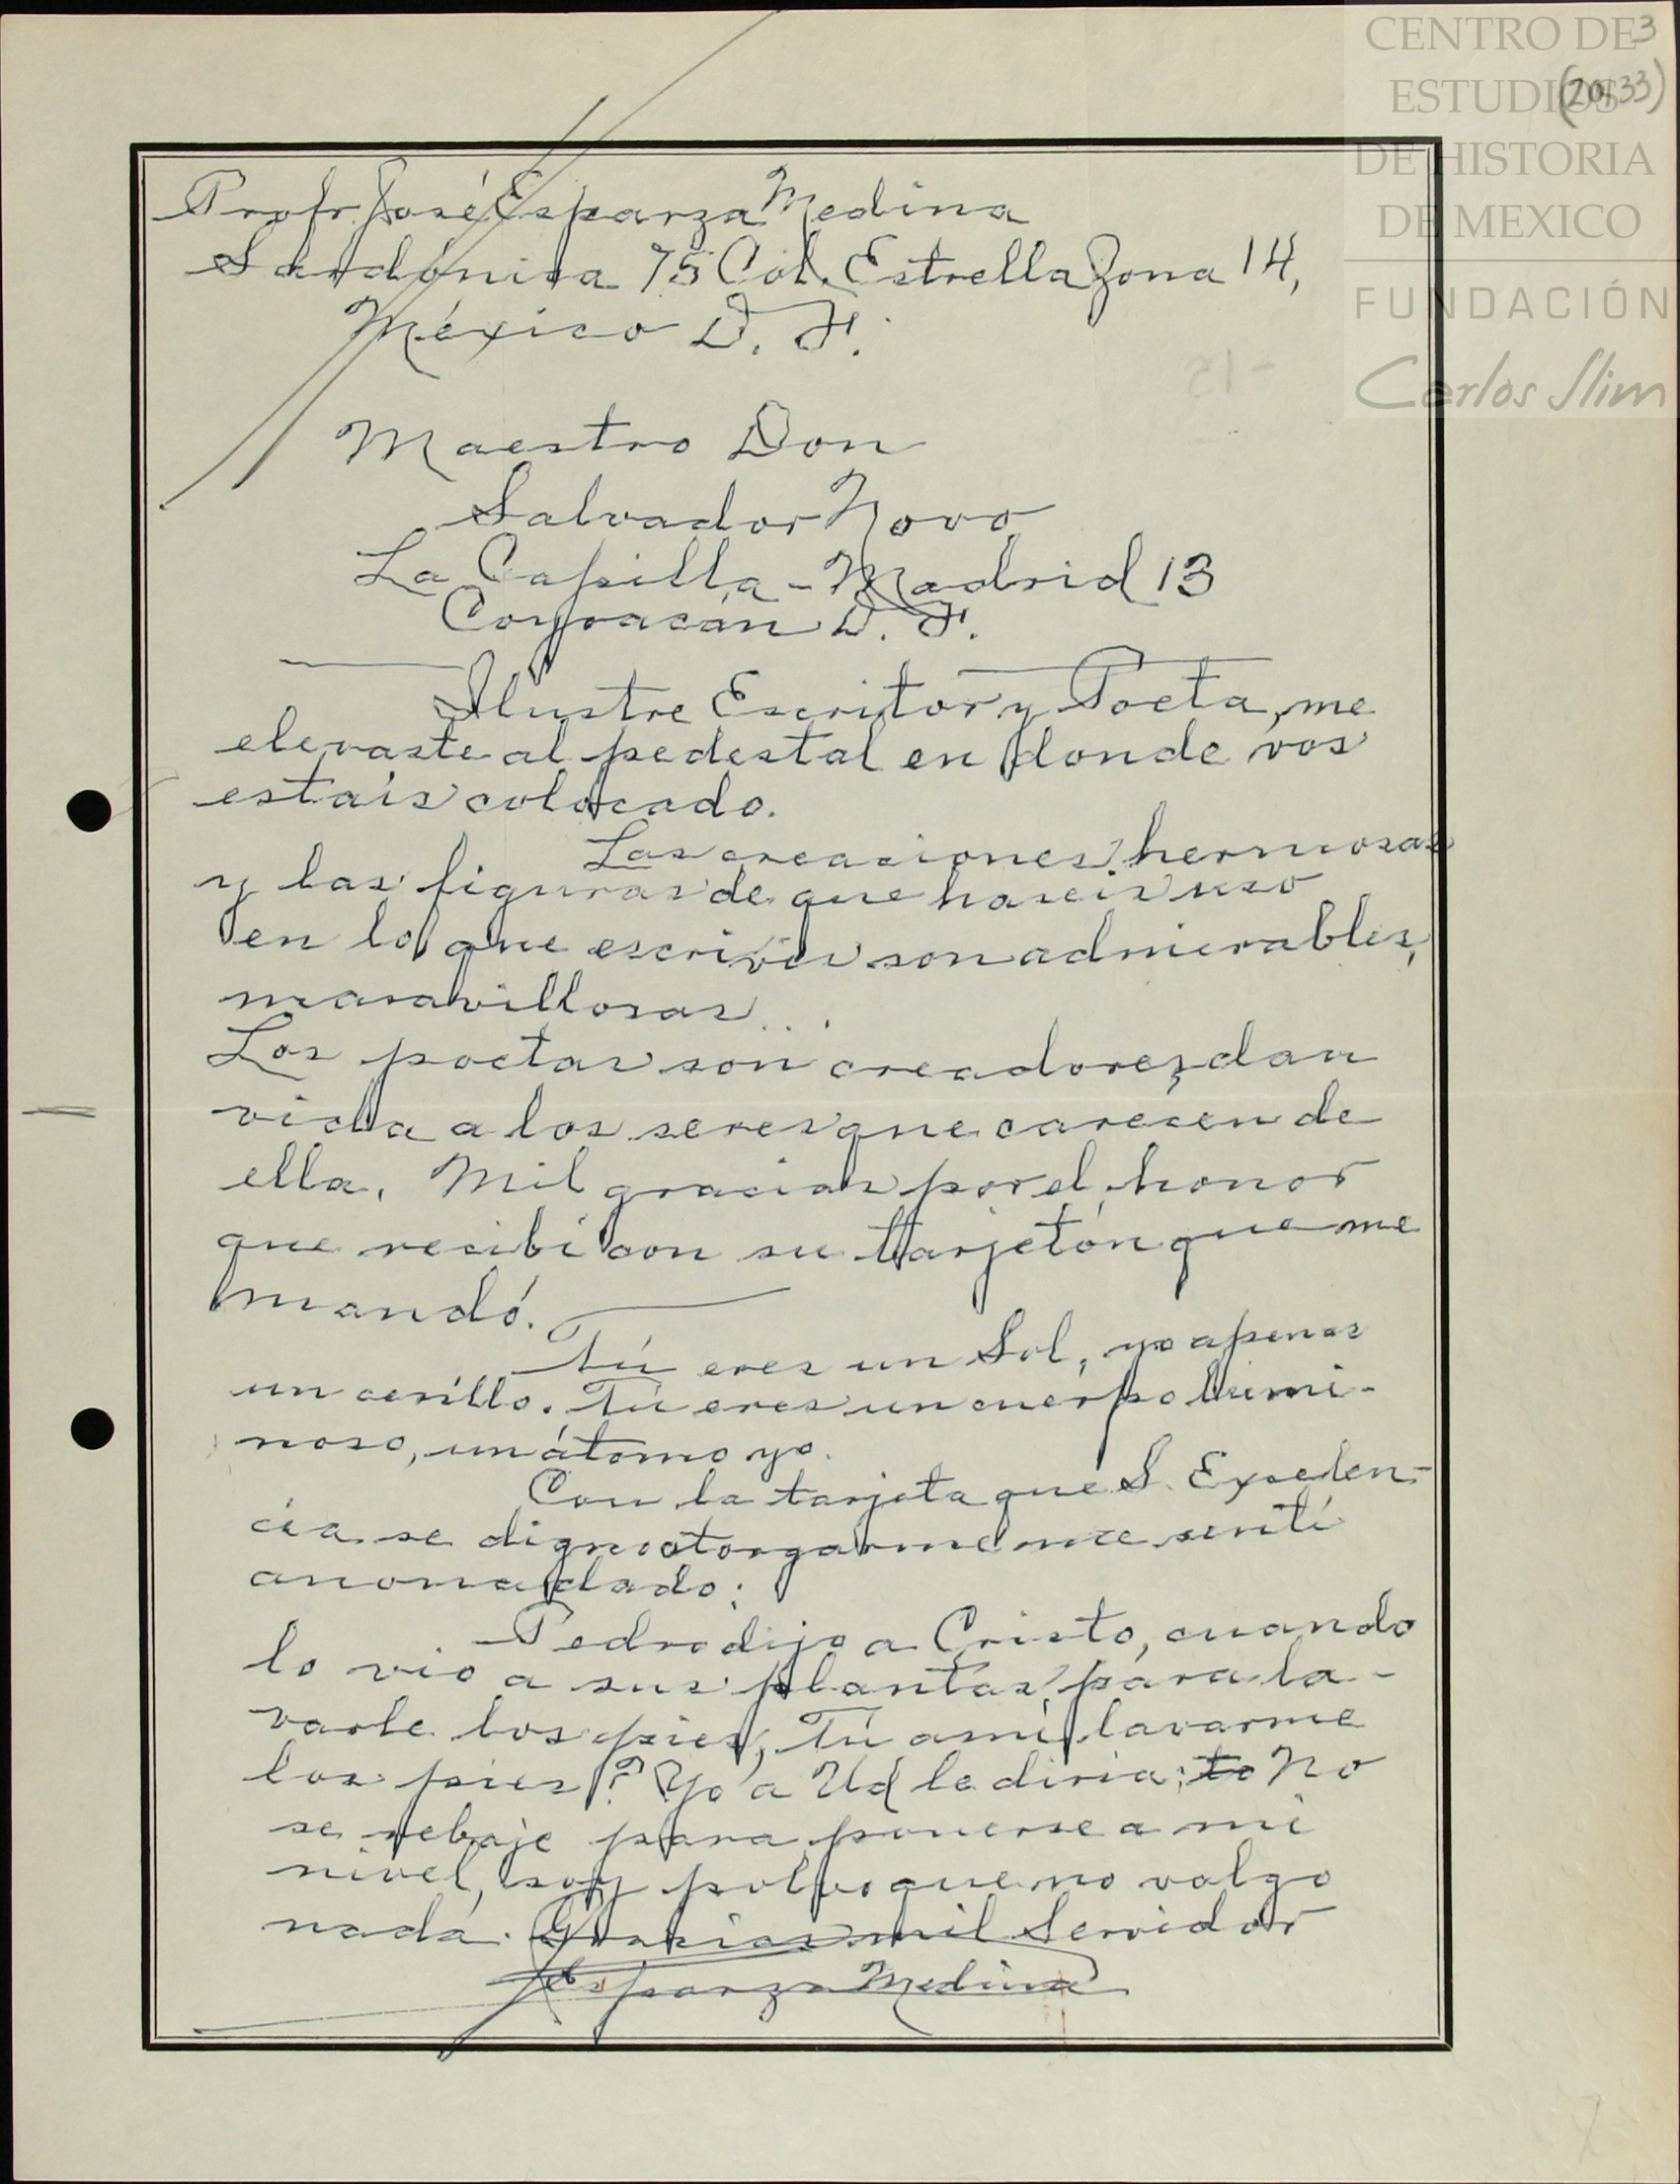 CENTRO DE
ESTUDIOS
DE HISTORIA
DE MEXICO
FUNDACIÓN
Carlos Slim
3
Profr. José Esparza Medina
Sardónica 75 Col. Estrella Zona 14,
México D. F.
Maestro Don
Salvador Novo
La Capilla - Madrid 13
Coyoacán D. F.
Ilustre Escritor y Poeta, me
elevaste al pedestal en donde vos
estais colocado.
Las creaciones hermosas
y las figuras de que haceis uso
en lo que escribis son admirables,
maravillosas...
Los poetas son creadores, dan
vida a los seres que carecen de
ella. Mil gracias por el honor
que recibí con su tarjetón que me
mandó.
Tú eres un Sol, yo apenas
un cerillo. Tú eres un cuerpo lumi-
noso, un átomo yo.
Con la tarjeta que S. Excelen-
cia se digno otorgarme me sentí
anonadado:
Pedro dijo a Cristo, cuando
lo vio a sus plantas, para la-
varle los pies, Tú a mí lavarme
los pies? Yo a Ud le diria: to No
se rebaje para ponerse a mi
nivel, soy polvo que no valgo
nada. Gracias mil Servidor
JEsparza Medina